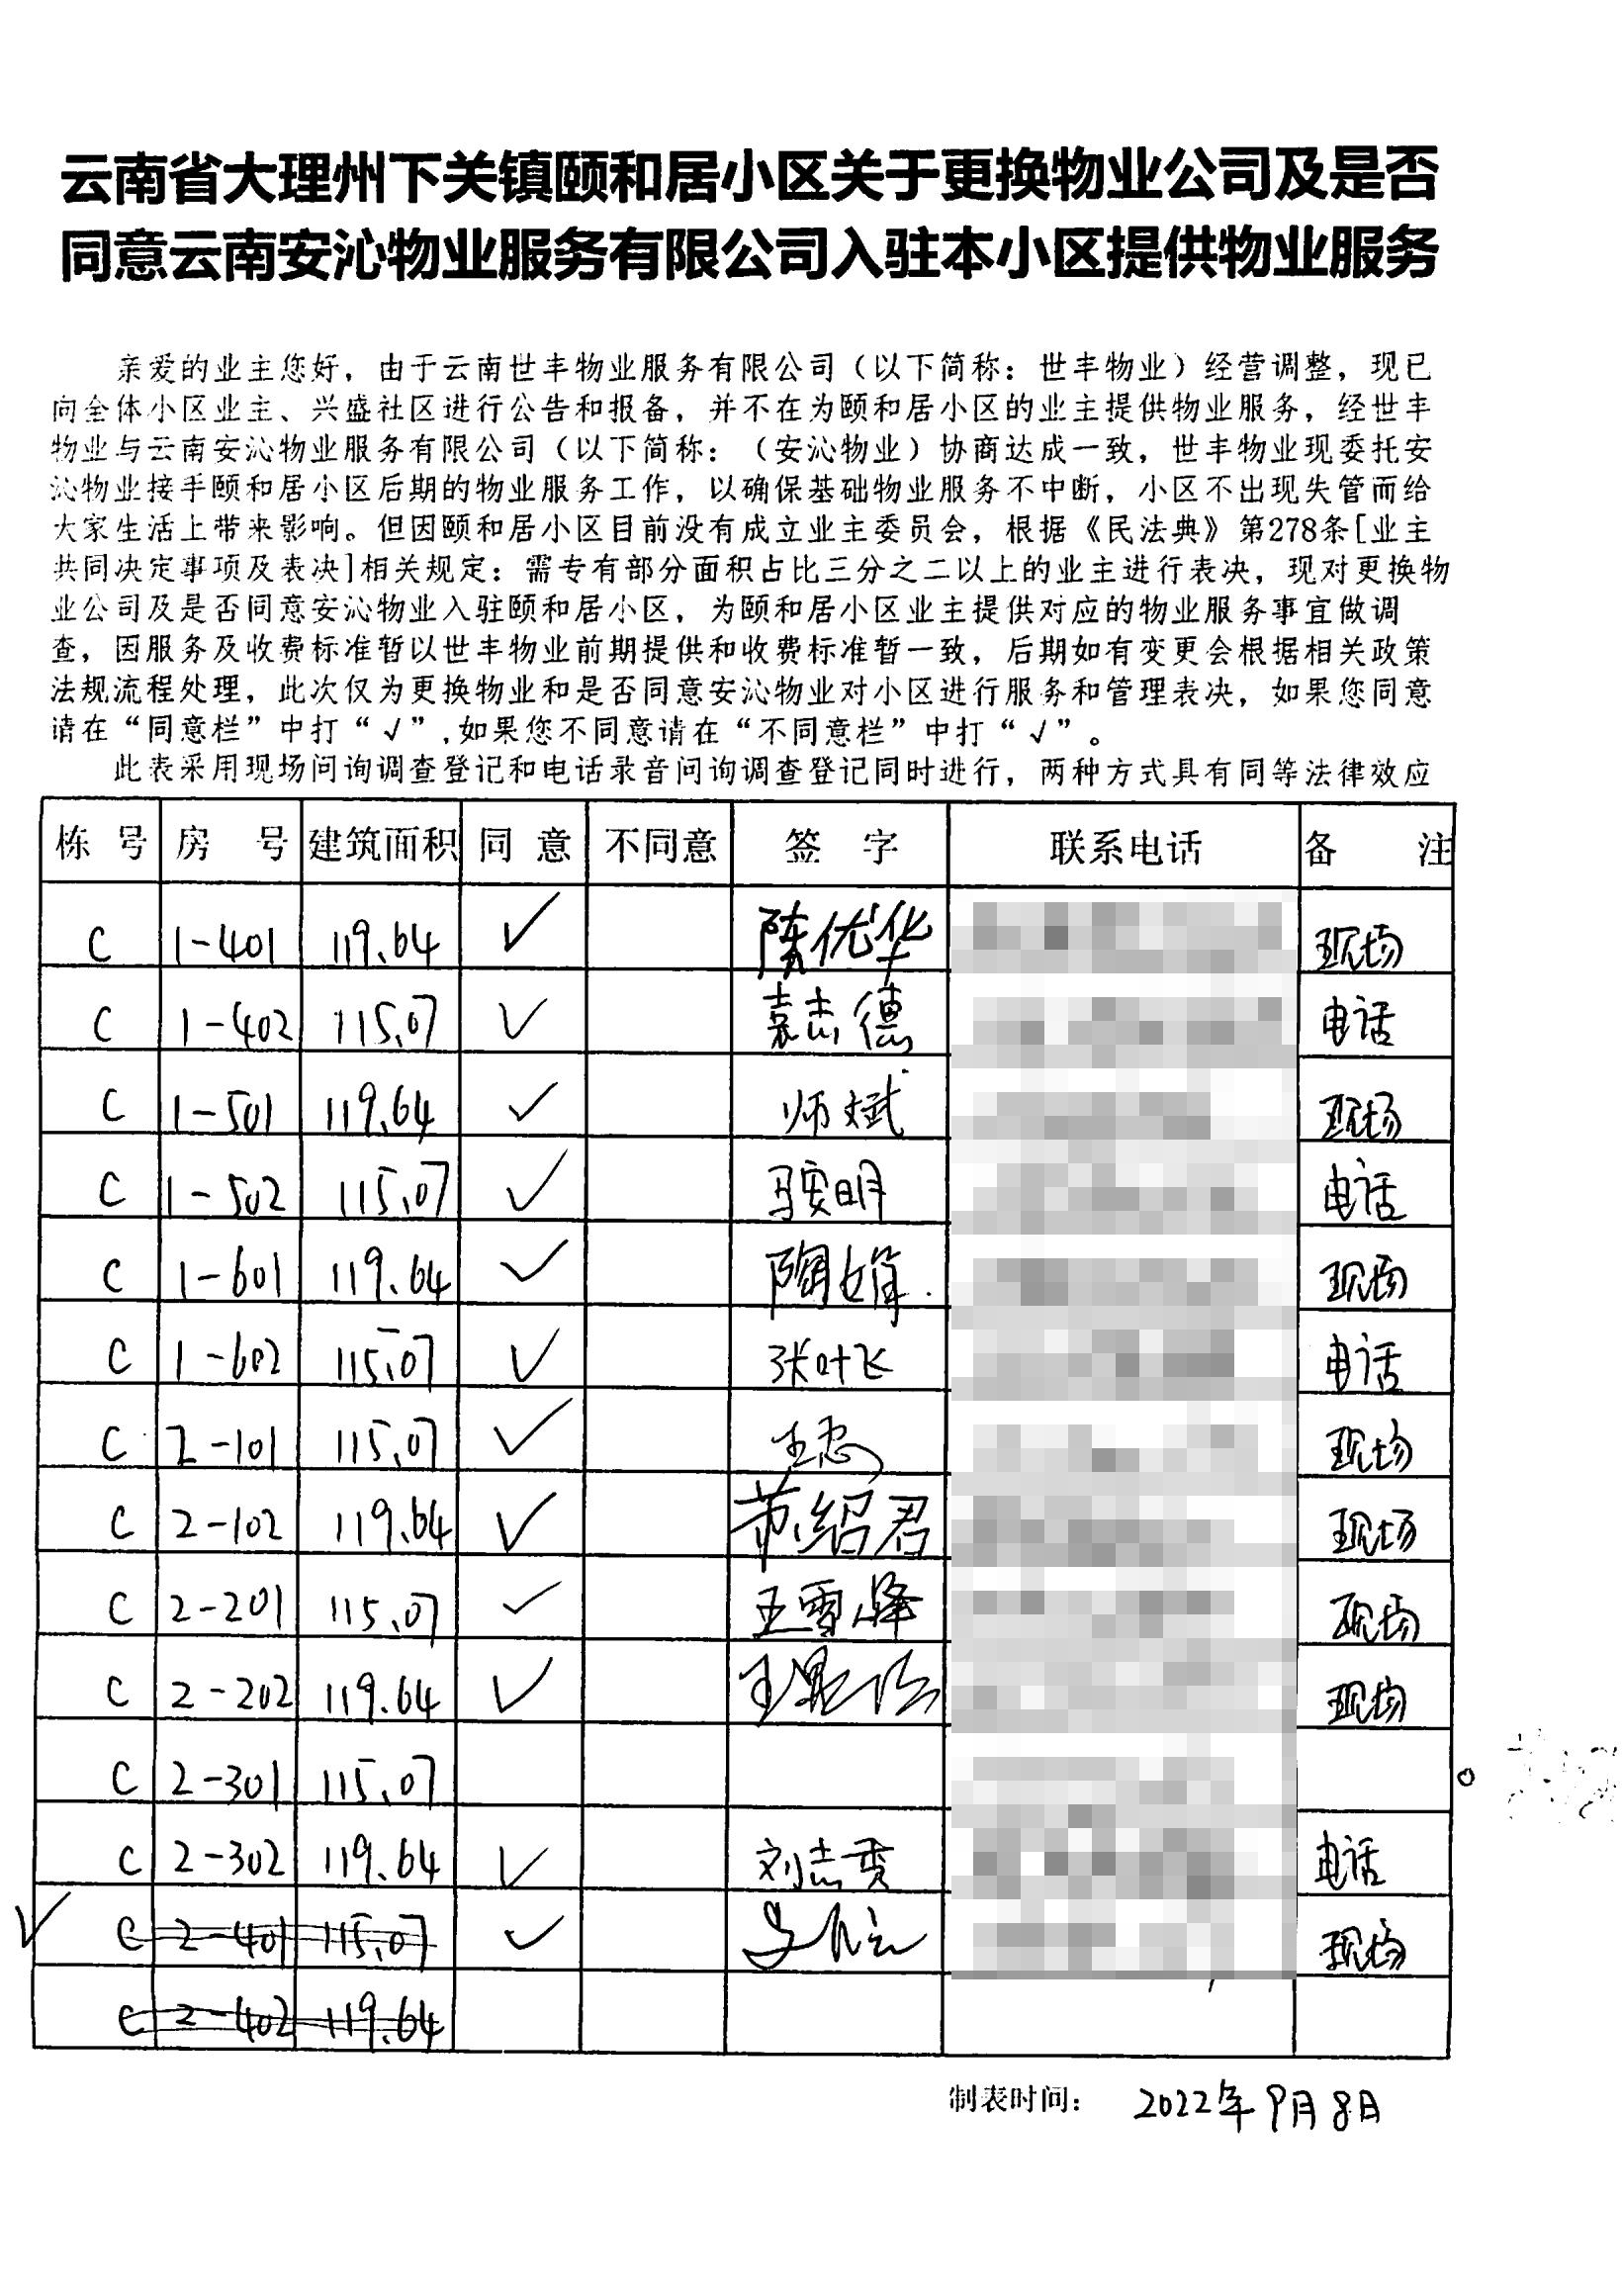 云南省大理州下关镇颐和居小区关于更换物业公司及是否
同意云南安沁物业服务有限公司入驻本小区提供物业服务
亲爱的业主您好，由于云南世丰物业服务有限公司（以下简称：世丰物业）经营调整，现已
向全体小区业主、兴盛社区进行公告和报备，并不在为颐和居小区的业主提供物业服务，经世丰
物业与云南安沁物业服务有限公司（以下简称：（安沁物业）协商达成一致，世丰物业现委托安
沁物业接手颐和居小区后期的物业服务工作，以确保基础物业服务不中断，小区不出现失管而给
大家生活上带来影响。但因颐和居小区目前没有成立业主委员会，根据《民法典》第278条[业主
共同决定事项及表决]相关规定：需专有部分面积占比三分之二以上的业主进行表决，现对更换物
业公司及是否同意安沁物业入驻颐和居小区，为颐和居小区业主提供对应的物业服务事宜做调
查，因服务及收费标准暂以世丰物业前期提供和收费标准暂一致，后期如有变更会根据相关政策
法规流程处理，此次仅为更换物业和是否同意安沁物业对小区进行服务和管理表决，如果您同意
请在“同意栏”中打“√”,如果您不同意请在“不同意栏”中打“√”。
此表采用现场问询调查登记和电话录音问询调查登记同时进行，两种方式具有同等法律效应
栋 号 房 号 建筑面积 同 意 不同意 签 字 联系电话 备 注
C 1-401 119.64 ✓ 陈优华 现场
C 1-402 115.07 ✓ 袁志德 电话
C 1-501 119.64 ✓ 师斌 现场
C 1-502 115.07 ✓ 马安明 电话
C 1-601 119.64 ✓ 陶娟 现场
C 1-602 115.07 ✓ 张叶飞 电话
C 2-101 115.07 ✓ 王忠 现场
C 2-102 119.64 ✓ 绍君 现场
C 2-201 115.07 ✓ 王雪峰 现场
C 2-202 119.64 ✓ 王 现场
C 2-301 115.07
C 2-302 119.64 ✓ 刘志 电话
✓ C 2-401 115.07 ✓ 现场
C 2-402 119.64
制表时间： 2022年9月8日